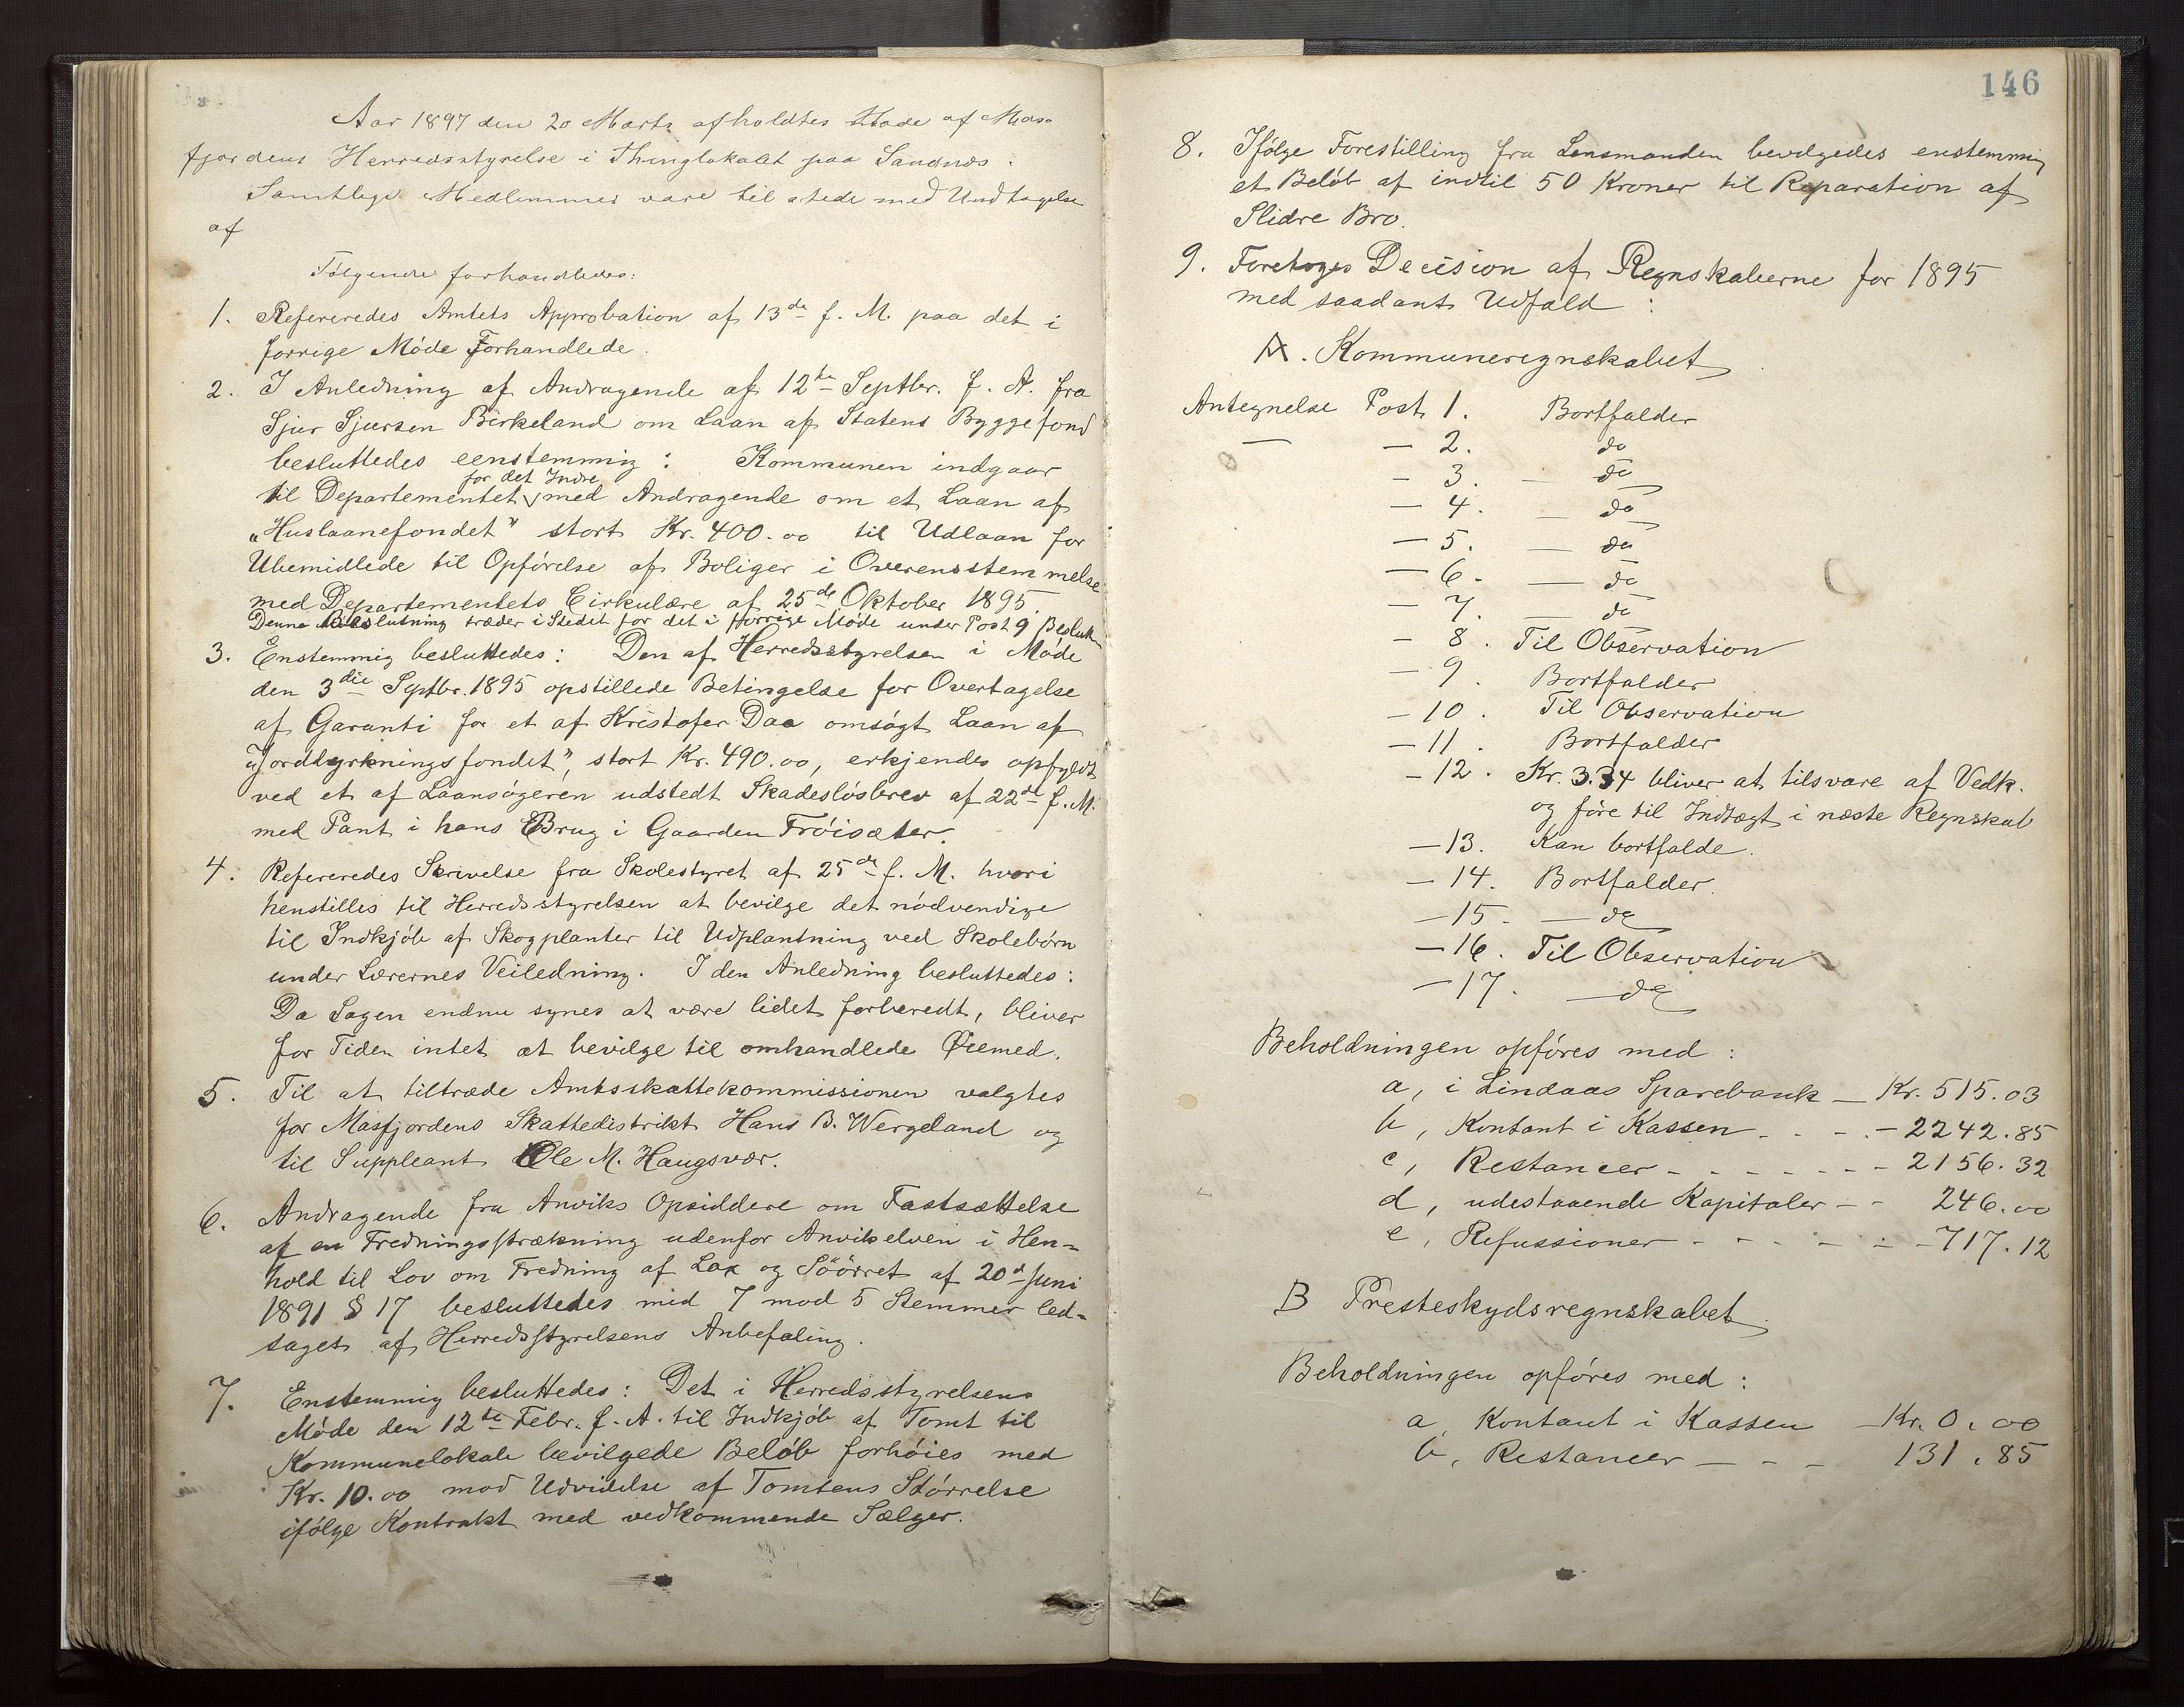 Aar 1897 den 20 Marts afholdtes Møde af Mas-
fjordens Herredsstyrelse i Thinglokalet paa Sandnæs.
Samtlige Medlemmer vare til stede med Undtagelse
af
Følgende forhandledes:
1. Refereredes Amtets Approbation af 13de f. M. paa det i
forrige Møde Forhandlede.
2. I Anledning af Andragende af 12te Septbr. f. A. fra
Sjur Sjursen Birkeland om Laan af Statens Byggefond
besluttedes eenstemmig: Kommunen indgaar
for det Indre
til Departementet med Andragende om et Laan af
„Huslaanefondet" stort Kr. 400.00 til Udlaan for
Ubemidlede til Opførelse af Boliger i Overensstemmelse
med Departementets Cirkulære af 25de Oktober 1895.
Denne Beslutning træder i Stedet for det i forrige Møde under Post 9 Beslutn
3. Enstemmig besluttedes: Den af Herredsstyrelsen i Møde
den 3die Septbr. 1895 opstillede Betingelse for Overtagelse
af Garanti for et af Kristofer Daa omsøgt Laan af
„Jorddyrkningsfondet", stort Kr. 490.00, erkjendes opfyldt
ved et af Laansøgeren udstedt Skadesløsbrev af 22de f. M.
med Pant i hans Brug i Gaarden Frøisæter.
4. Refereredes Skrivelse fra Skolestyret af 25de f. M. hvori
henstilles til Herredsstyrelsen at bevilge det nødvendige
til Indkjøb af Skogplanter til Udplantning ved Skolebørn
under Lærernes Veiledning. I den Anledning besluttedes:
Da Sagen endnu synes at være lidet forberedt, bliver
for Tiden intet at bevilge til omhandlede Øiemed.
5. Til at tiltræde Amtsskattekommissionen valgtes
for Masfjordens Skattedistrikt Hans B. Wergeland og
til Suppleant Ole M. Haugsvær.
6. Andragende fra Anviks Opsiddere om Fastsættelse
af en Fredningsstrækning udenfor Anvikelven i Hen-
hold til Lov om Fredning af Lax og Søørret af 20de Juni
1891 § 17 besluttedes mid 7 mod 5 Stemmer led-
saget af Herredsstyrelsens Anbefaling.
7. Enstemmig besluttedes: Det i Herredsstyrelsens
Møde den 12te Febr. f. A. til Indkjøb af Tomt til
Kommunelokale bevilgede Beløb forhøies med
Kr. 10.00 mod Udvidelse af Tomtens Størrelse
ifølge Kontrakt med vedkommende Sælger.
146
8. Ifølge Forestilling fra Lensmanden bevilgedes enstemmig
et Beløb af indtil 50 Kroner til Reparation af
Slidre Bro.
9. Foretoges Decision af Regnskaberne for 1895
med saadant Udfald:
A. Kommuneregnskabet
Antegnelse Post 1. Bortfalder
— — 2. do
— 3. — do
— 4. — do
— 5. — do
— 6. — do
— 7. — do
— 8. Til Observation
— 9. Bortfalder
— 10. Til Observation
— 11. Bortfalder
— 12. Kr. 3.34 bliver at tilsvare af Vedk.
og føre til Indtægt i næste Regnskab
— 13. Kan bortfalde.
— 14. Bortfalder.
— 15. — do
— 16. Til Observation
— 17. — do
Beholdningen opføres med:
a, i Lindaas Sparebank — Kr. 515.03
b, Kontant i Kassen - - - - 2242.85
c, Restancer - - - - - - - 2156.32
d, udestaaende Kapitaler - - 246.00
e, Refussioner - - - - - - 717.12
B Presteskydsregnskabet
Beholdningen opføres med:
a, Kontant i Kassen — Kr. 0.00
b, Restancer — - - 131.85